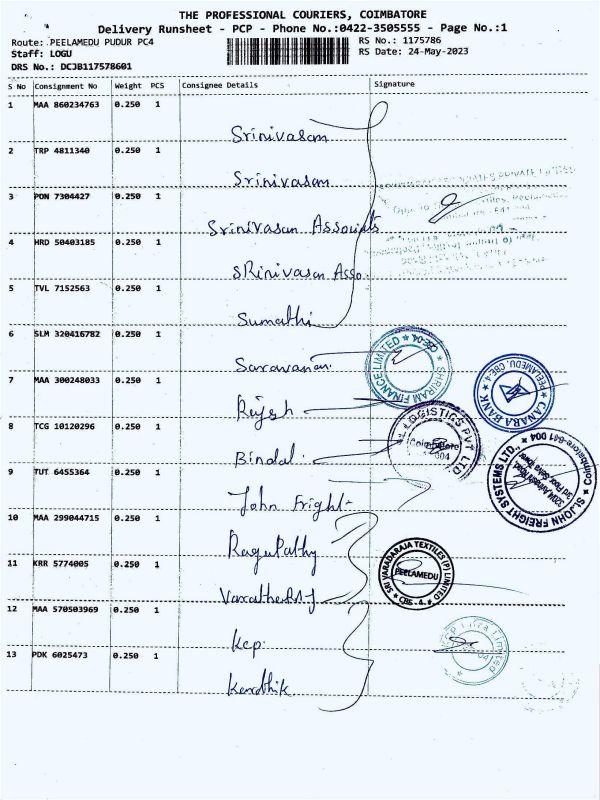 THE PROFESSIONAL COURIERS, COIMBATORE
Delivery Runsheet - PCP - Phone No.:0422-3505555 - Page No.:1
Route: PEELAMEDU PUDUR PC4
RS No.: 1175786
Staff: LOGU
RS Date: 24-May-2023
DRS No.: DCJB117578601
S No Consignment No Weight PCS Consignee Details Signature
1 MAA 860234763 0.250 1 Srinivasan
2 TRP 4811340 0.250 1 Srinivasan
3 PON 7304427 0.250 1 Srinivasan Associats
4 HRD 50403185 0.250 1 SRinivasan Asso.
5 TVL 7152563 0.250 1 Sumathi
6 SLM 320416782 0.250 1 Saravanan
SHRIRAM FINANCE LIMITED * CBE-04 *
7 MAA 300248033 0.250 1 Rajesh
* CANARA BANK * PEELAMEDU, CBE.4.
8 TCG 10120296 0.250 1 Bindal
LOGISTICS PVT LTD
Coimbatore
004
9 TUT 6455364 0.250 1 John Fright
SIJOHN FREIGHT SYSTEMS LTD., * Coimbatore-641 004
3rd Floor
10 MAA 299044715 0.250 1 Ragupathy
11 KRR 5774005 0.250 1
SRI VARADARAJA TEXTILES (P) LIMITED
PEELAMEDU
* CBE - 4. *
12 MAA 570503969 0.250 1 Kcp
13 PDK 6025473 0.250 1 Karthik